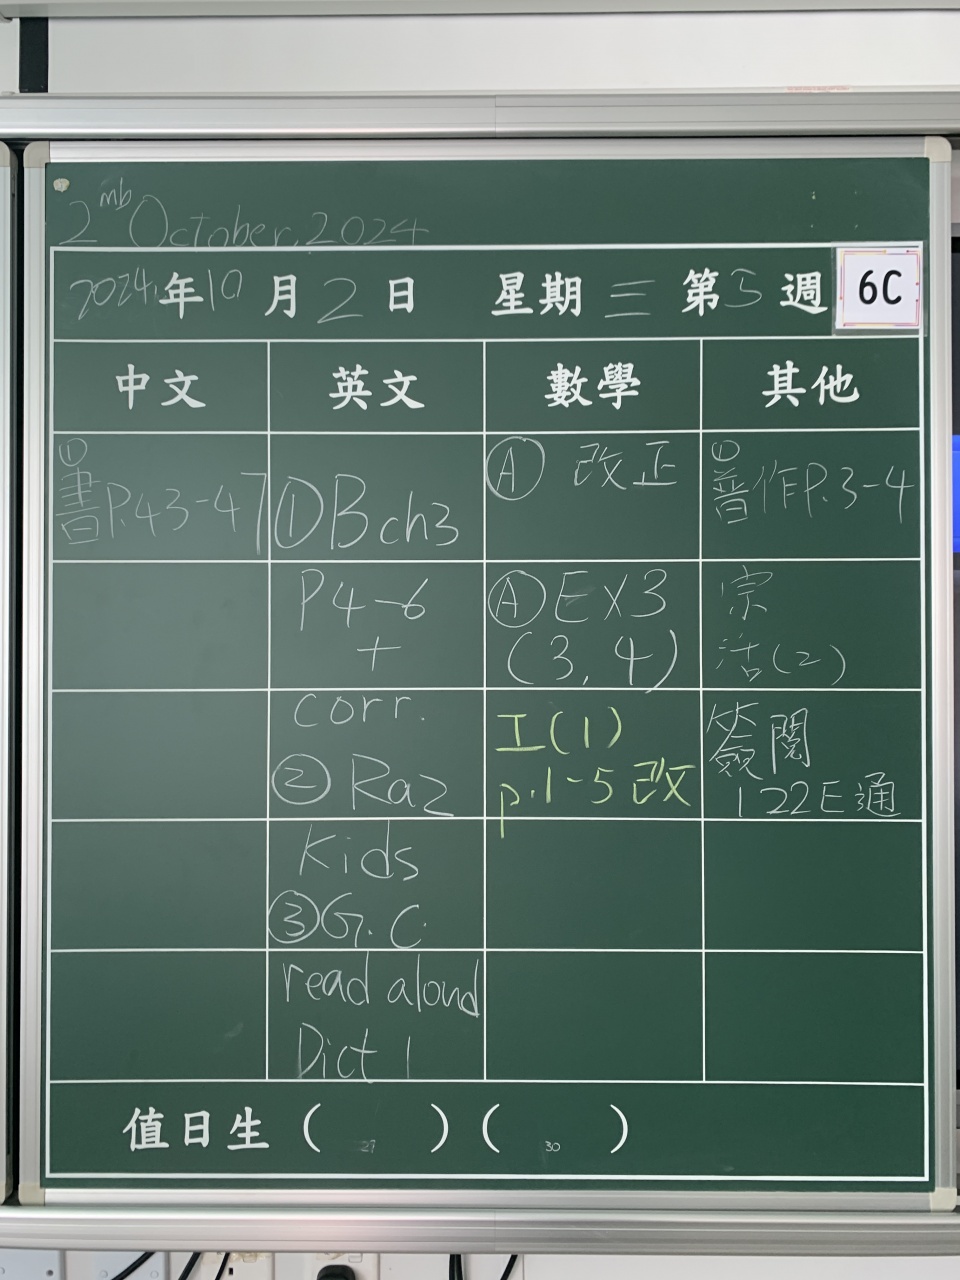 2nd October, 2024
2024年10月2日 星期三 第5週 6C
中文 英文 數學 其他
① 書P.43-47
①B ch3
P4-6
+
corr.
② Raz
Kids
③G.C.
read aloud
Dict 1
Ⓐ 改正
Ⓐ EX3
(3, 4)
工(1)
p.1-5 改
① 普作P.3-4
宗
活(2)
簽閱
122E通
值日生 (27) (30)